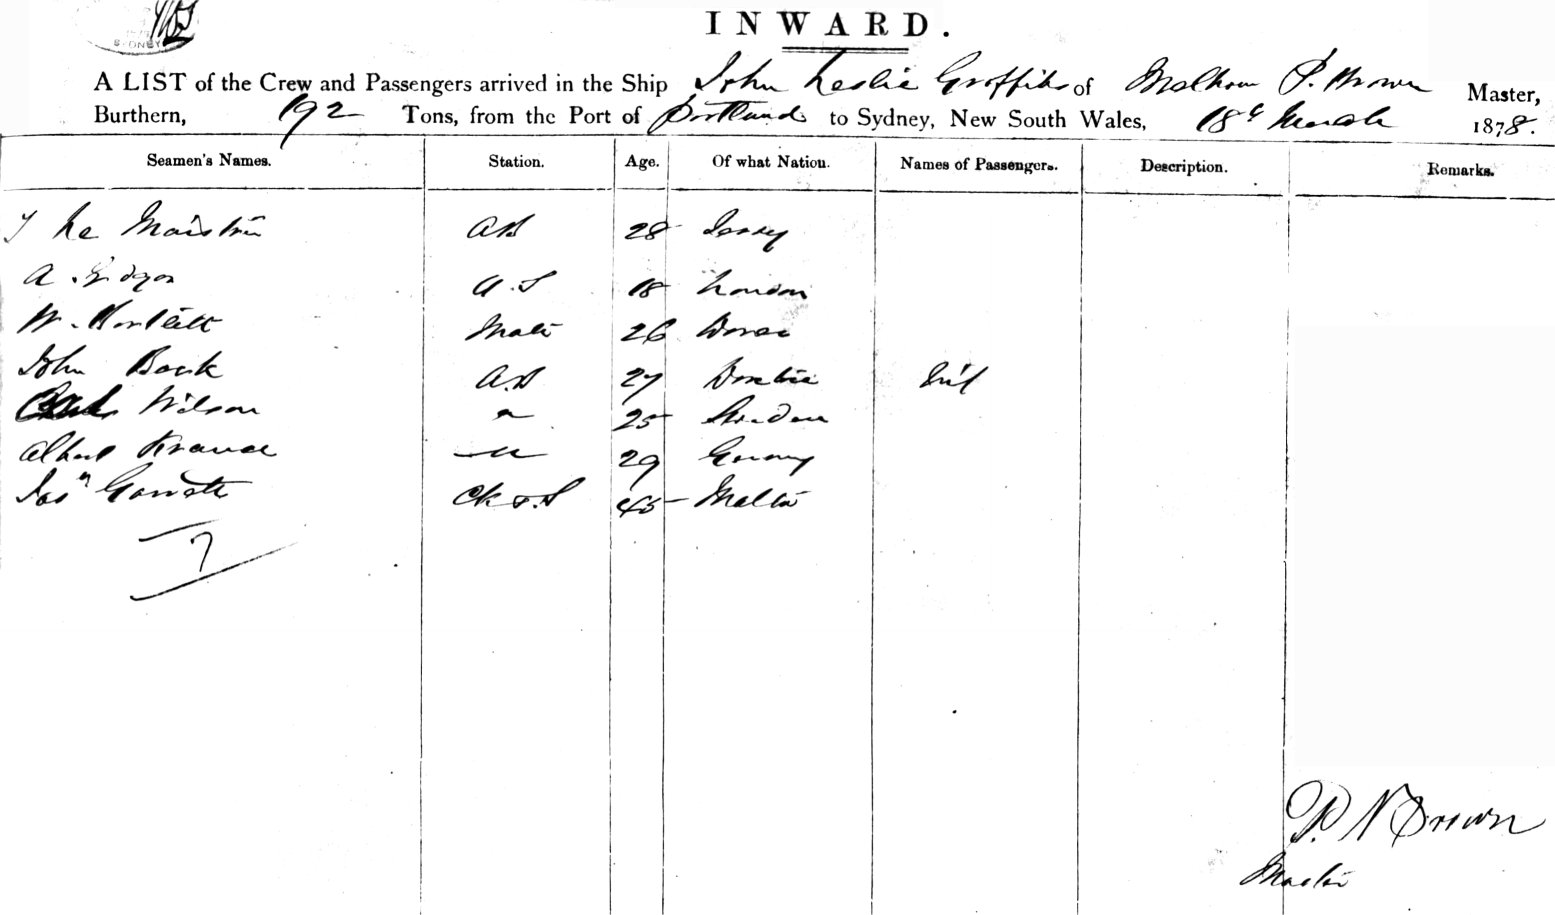 SYDNEY
INWARD.
A LIST of the Crew and Passengers arrived in the Ship John Leslie Griffiths of P. Brown Master,
Burthern, 192 Tons, from the Port of Portland to Sydney, New South Wales, 18th March 1878.
Seamen's Names. Station. Age. Of what Nation. Names of Passengers. Description. Remarks.
Le Maistre AB 28 Jersey
A. 18 London
W. Mate 26 Dover
John Back A.B 27 Nil
Wilson 25 Sweden
Albert Krause 29 Germany
Garrett Ck & S 45 Malta
7
P. N Brown
Master